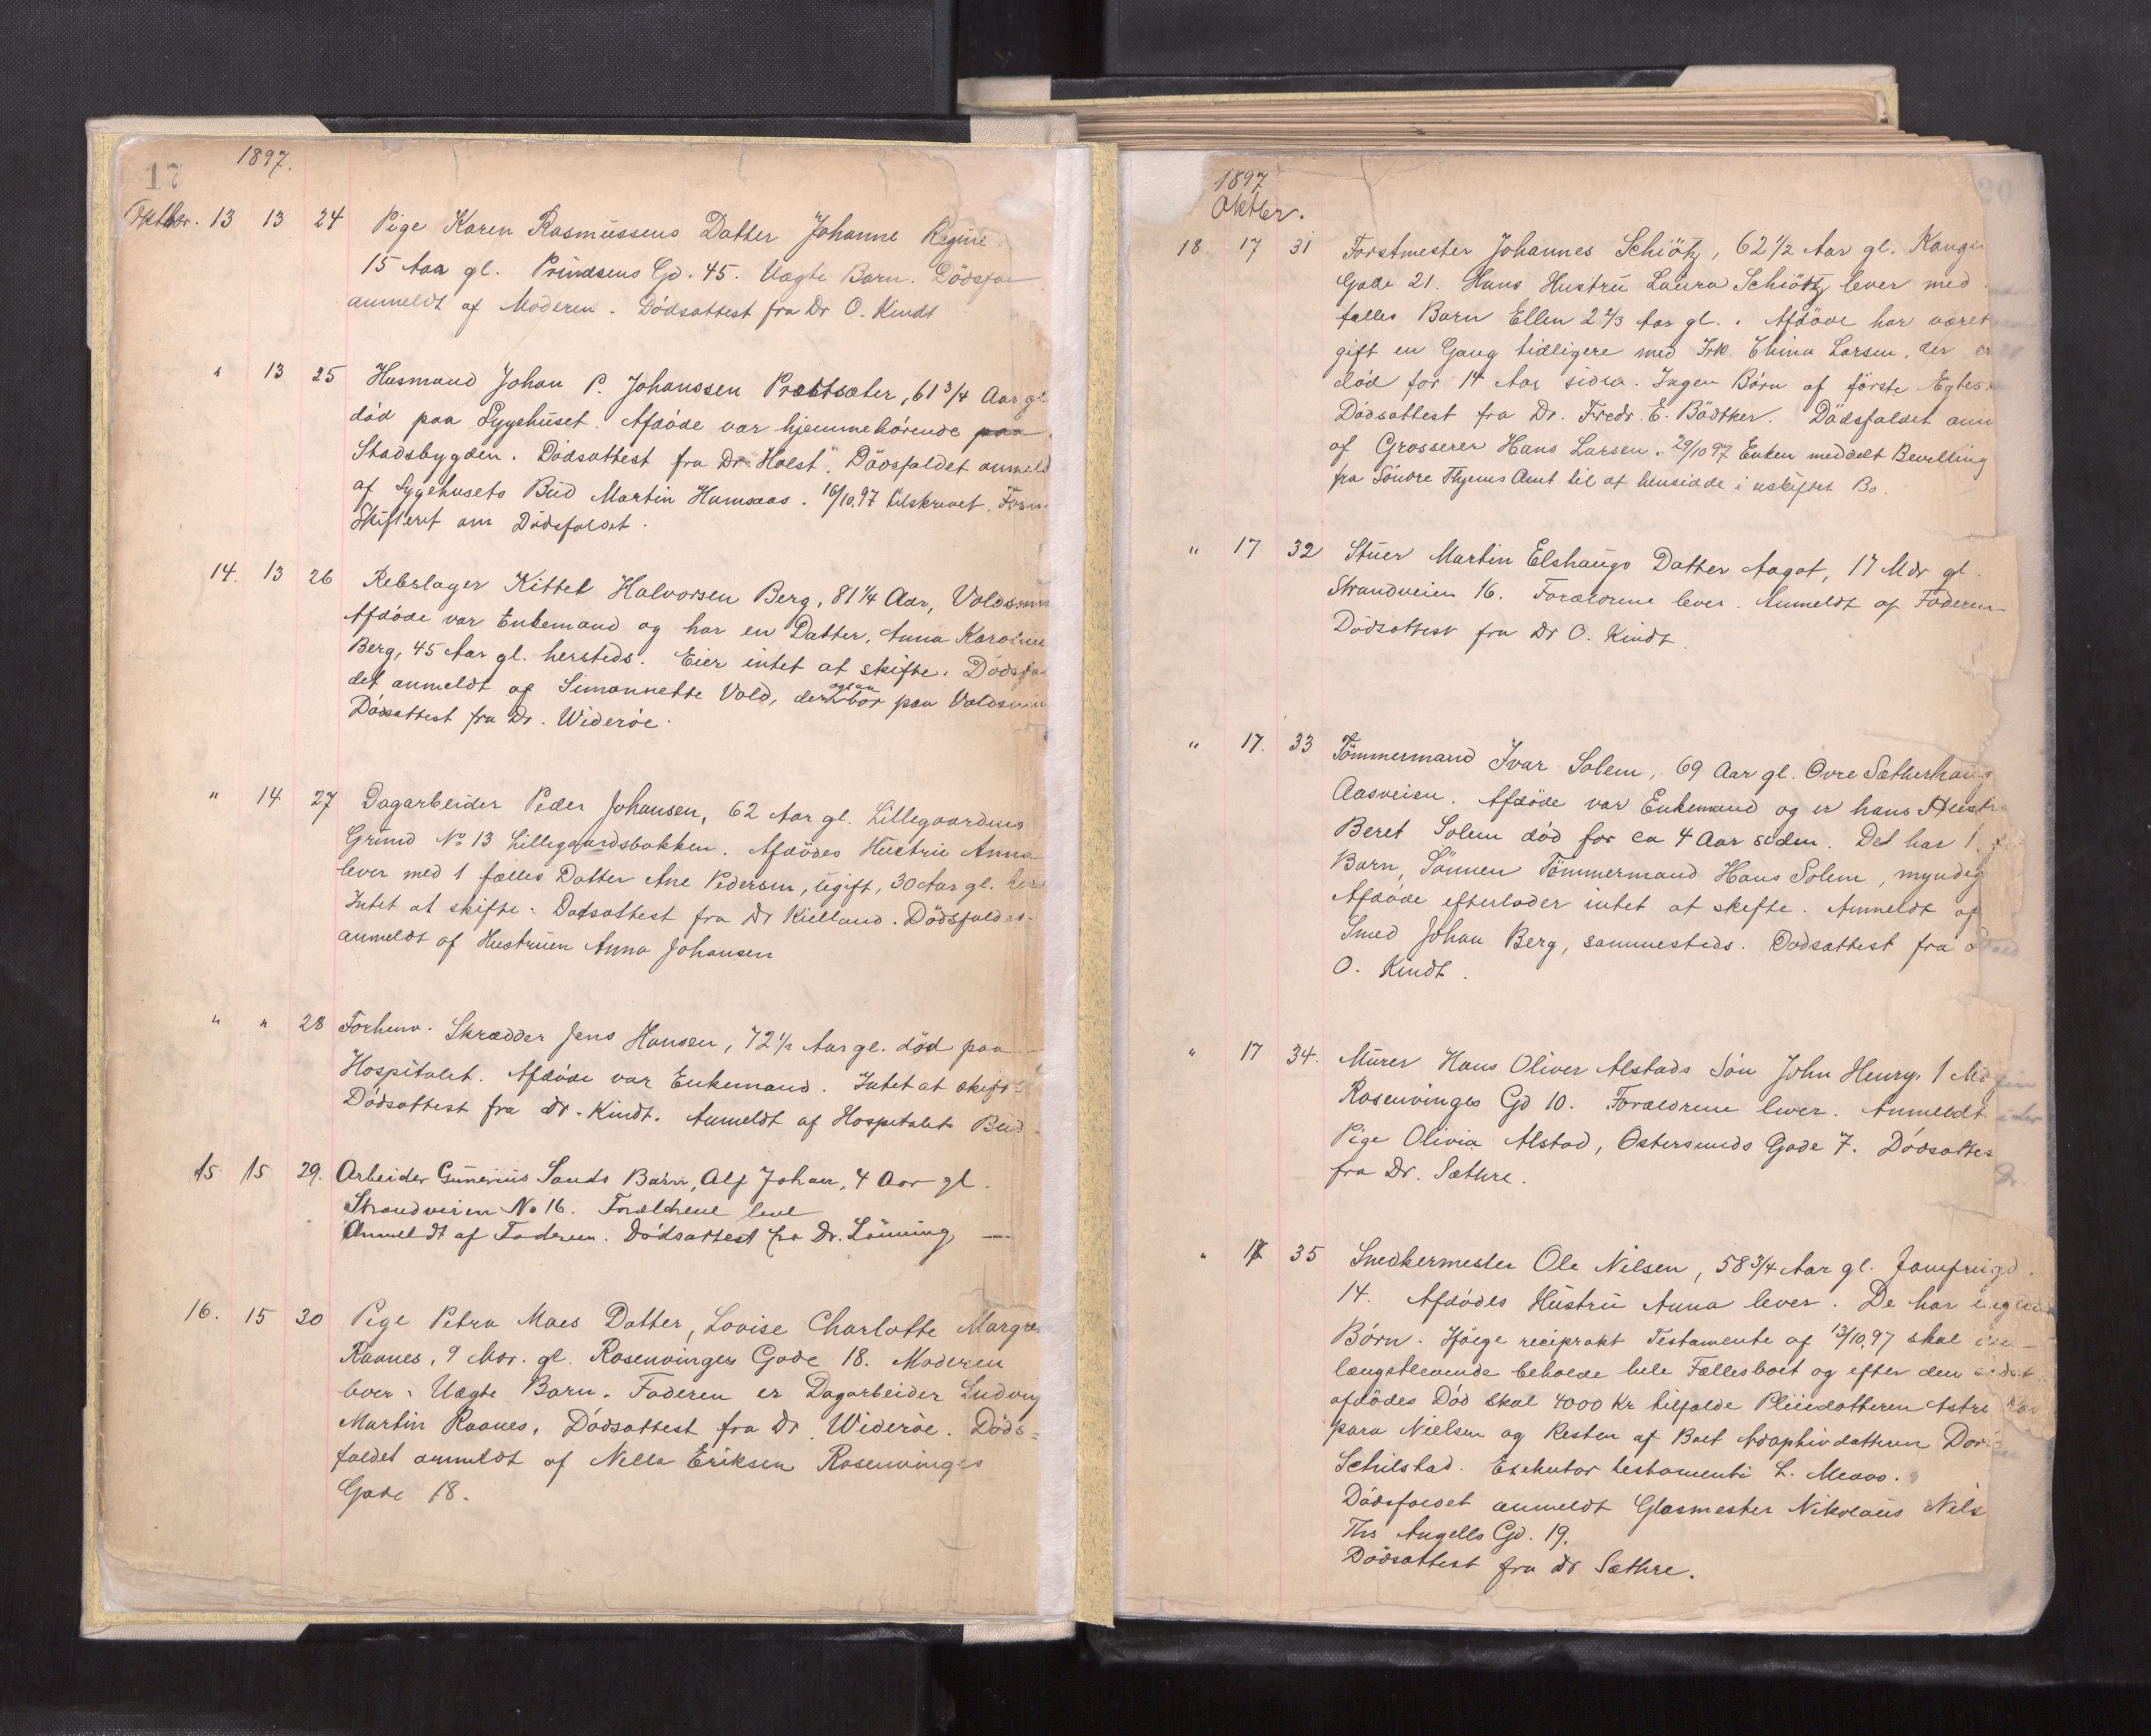 17
1897.
Oktbr. 13 13 24 Pige Karen Rasmussens Datter Johanne Regine
15 Aar gl. Prindsens Gd. 45. Uægte Barn. Dödsfal
anmeldt af Moderen. Dödsattest fra Dr O. Kindt
" 13 25 Husmand Johan P. Johanssen Prætsæter, 61 3/4 Aar gl
död paa Sygehuset. Afdöde var hjemmehörende paa
Stadsbygden. Dödsattest fra Dr. Holst. Dödsfaldet anmeldt
af Sygehusets Bud Martin Hamsaas. 16/10.97 tilskrevet Fosn.
Skifteret om Dödsfaldet.
14. 13 26 Rebslager Kittel Halvorsen Berg, 81 1/4 Aar,
Afdöde var Enkemand og har en Datter, Anna Karoline
Berg, 45 Aar gl. hersteds. Eier intet at skifte. Dödsfal
det anmeldt af Simonnette Vold, der ogsaa bor paa
Dödsattest fra Dr. Wideröe.
" 14 27 Dagarbeider Peder Johansen, 62 Aar gl. Lillegaardens
Grund No 13 Lillegaardsbakken. Afdödes Hustru Anna
lever med 1 fælles Datter Ane Pedersen, ugift, 30 Aar gl. hers
Intet at skifte. Dødsattest fra Dr Kielland. Dödsfaldet
anmeldt af Hustruen Anna Johansen
" " 28 Forhenv. Skrædder Jens Hansen, 72 1/2 Aar gl. död paa
Hospitalet. Afdöde var Enkemand. Intet at skifte
Dödsattest fra Dr. Kindt. Anmeldt af Hospitalets Bud
15 15 29. Arbeider Gunerius Sands Barn, Alf Johan, 4 Aar gl.
Strandveien No 16. Forældrene leve
Anmeldt af Faderen. Dödsattest fra Dr. Lönning —
16. 15 30 Pige Petra Moes Datter, Lovise Charlotte Margre
Raanes, 9 Mdr. gl. Rosenvinges Gade 18. Moderen
lever. Uægte Barn. Faderen er Dagarbeider Ludvig
Martin Raanes. Dödsattest fra Dr. Wideröe. Döds=
faldet anmeldt af Nella Eriksen Rosenvinges
Gade 18.
1897
Oktbr.
18. 17 31 Forstmester Johannes Schiötz, 62 1/2 Aar gl. Konge
Gade 21. Hans Hustru Laura Schiötz lever med
fælles Barn Ellen 2 2/3 Aar gl. Afdöde har været
gift en Gang tidligere med Frk. Elina Larsen, der er
död for 14 Aar siden. Ingen Börn af förste Egtes
Dödsattest fra Dr. Fredr. E. Bödtker. Dödsfaldet anm
af Grosserer Hans Larsen. 29/10 97 Enken meddelt Bevilling
fra Söndre Thjems Amt til at hensidde i uskiftet Bo.
" 17 32 Stuer Martin Elshaugs Datter Aagot, 17 Mdr gl.
Strandveien 16. Forældrene lever. Anmeldt af Faderen
Dödsattest fra Dr O. Kindt.
" 17. 33 Tömmermand Ivar Solem, 69 Aar gl. Ovre Sætherhaug
Aasveien. Afdöde var Enkemand og er hans Hustru
Beret Solem död for ca 4 Aar siden. Det har 1
Barn, Sönnen Tömmermand Hans Solem, myndig
Afdöde efterlader intet at skifte. Anmeldt af
Smed Johan Berg, sammesteds. Dödsattest fra
O. Kindt.
" 17 34. Murer Hans Oliver Alstads Sön John Henry, 1 Md
Rosenvinges Gd 10. Forældrene lever. Anmeldt
Pige Olivia Alstad, Ostersunds Gade 7. Dödsattes
fra Dr. Sæthre.
" 17 35 Snedkermester Ole Nilsen, 58 3/4 Aar gl. Jomfrugd.
14. Afdödes Hustru Anna lever. De har ingen
Börn. Ifölge reciprokt Testamente af 13/10.97 skal den
længstlevende beholde hele Fællesboet og efter den sidst
afdödes Död skal 4000 Kr tilfalde Pleiedatteren Astri
para Nielsen og Resten af Boet Adoptivdatteren Dor
Schilstad. Exekutor testamenti L. Meaas.
Dödsfaldet anmeldt Glasmester Nikolaus Nils
Ths Angells Gd. 19.
Dödsattest fra Dr Sæthre.